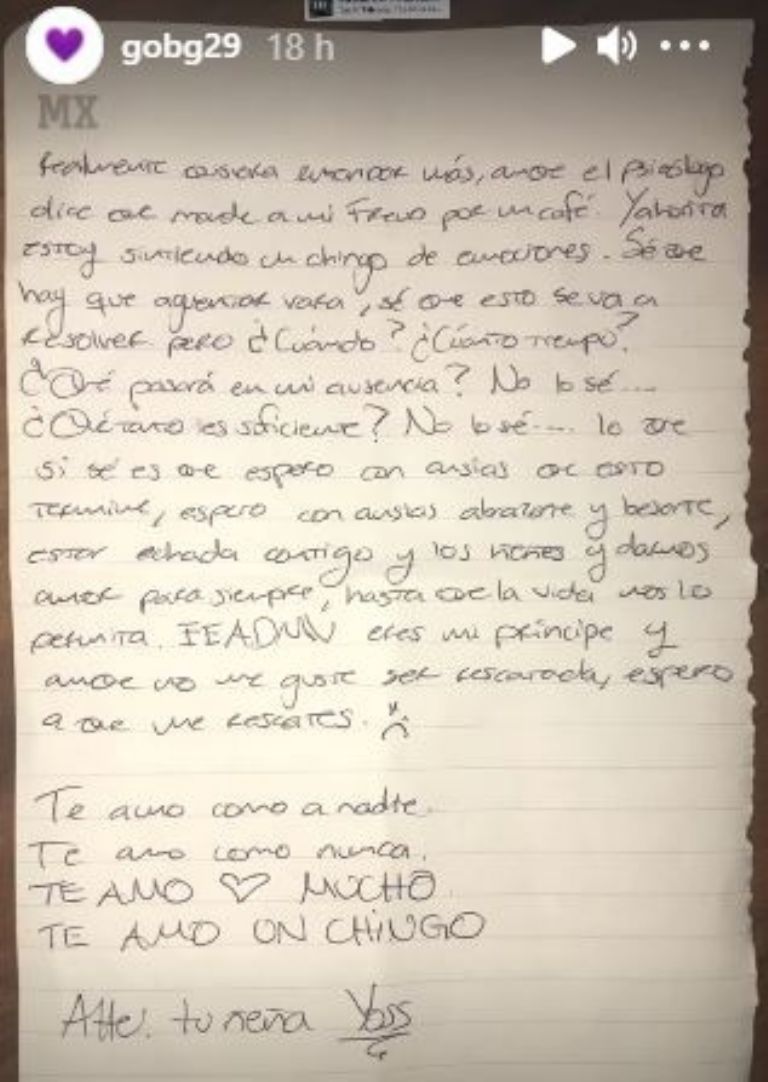 gobg29 18 h
MX
Realmente quisiera entender más, aunque el psicólogo
dice que mande a mi Freud por un café. Y ahorita
estoy sintiendo un chingo de emociones. Sé que
hay que aguantar vara, sé que esto se va a
resolver pero ¿Cuándo? ¿Cuánto tiempo?
¿Qué pasará en mi ausencia? No lo sé....
¿Qué tanto es suficiente? No lo sé.... lo que
si sé es que espero con ansias que esto
termine, espero con ansias abrazarte y besarte,
estar echada contigo y los nenes y darnos
amor para siempre, hasta que la vida nos lo
permita. eres mi príncipe y
aunque no me guste ser rescatada, espero
a que me rescates.
Te amo como a nadie.
Te amo como nunca.
TE AMO ♡ MUCHO.
TE AMO UN CHINGO
Atte: tu nena Yoss